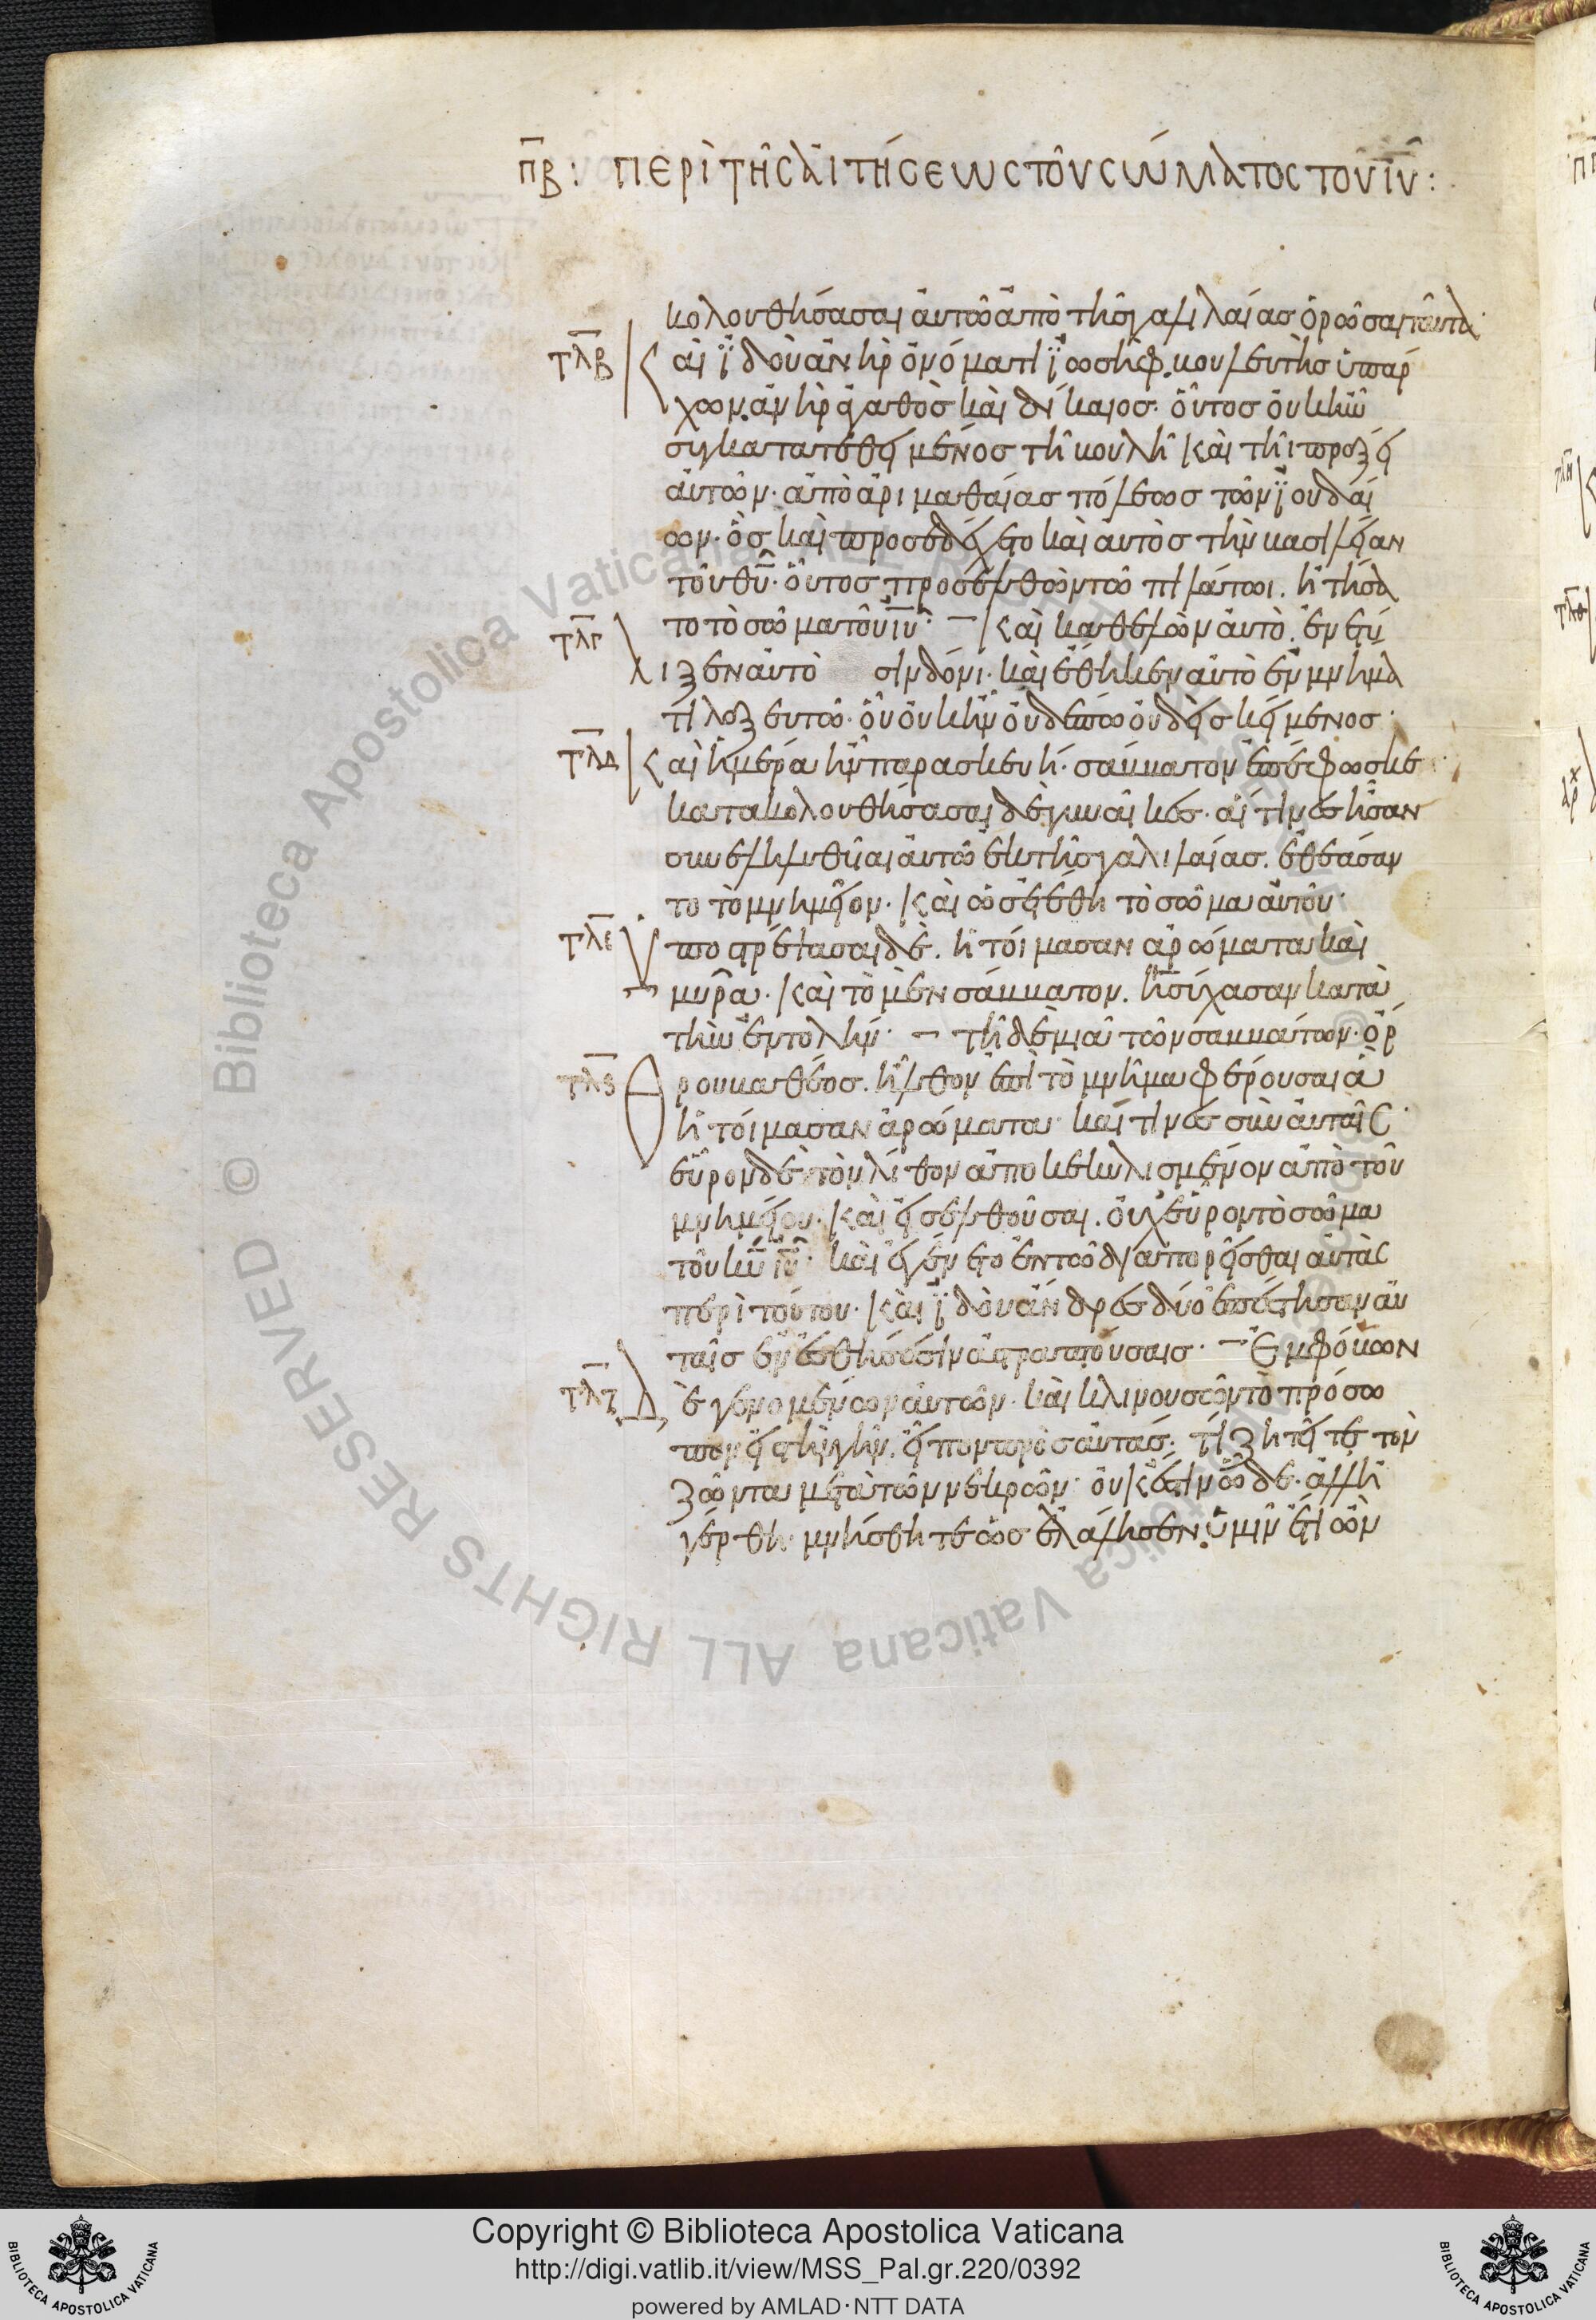 π̅β̅: ΠΕΡὶ ΤΗ͂C ἈΙΤΉCΕΩC ΤΟΥ͂ CΏΜΑΤΟC ΤΟΥ͂ ΙΥ̅:
κολουθήσασαι ἀυτῶ ἀπὸ τῆς γαλιλαίας ὁρῶσαι ταῦτα·
τλβ Κ αὶ ϊδοὺ ἀνὴρ ὀνόματι ϊωσὴφ. βουλευτὴς ὑπάρ
χων. ἀνὴρ ἀγαθὸς καὶ δίκαιος. οὗτος οὐκ ἦν
συγκατατεθειμένος τῆ βουλῆ καὶ τῆι πράξει
ἀυτῶν· ἀπὸ ἀριμαθαίας πόλεως τῶν ϊουδαί
ων. ὃς καὶ προσεδέχετο καὶ ἀυτὸς τὴν βασιλείαν
τοῦ θυ̅. οὗτος προσελθὼν τῶ πιλάτωι. ἠτήσα
το τὸ σῶμα τοῦ ιυ̅·
τλγ Καὶ καθελὼν ἀυτὸ. ἐνετύ
λιξεν ἀυτὸ σινδόνι· καὶ ἔθηκεν ἀυτὸ ἐν μνήμα
τι λαξευτῶ· οὗ οὐκ ἦν οὐδέπω οὐδεὶς κείμενος·
τλδ Κ αὶ ἡμέρα ἦν παρασκευή. σάββατον ἐπέφωσκε
κατακολουθήσασαι δὲ γυναῖκες. αἵτινες ἦσαν
συνεληλυθῦιαι ἀυτῶ ἐκ τῆς γαλιλαίας. ἐθεάσαν
το τὸ μνημεῖον. Καὶ ὡς ἐτέθη τὸ σῶμα ἀυτοῦ·
τλε Υ ποστρέψασαι δὲ. ἡτοίμασαν ἀρώματα καὶ
μύρα. Καὶ τὸ μὲν σάββατον. ἡσύχασαν κατὰ
τὴν ἐντολήν· τῆ δὲ μιᾶ τῶν σαββάτων. ὄρ
τλς Θ ρου βαθέος. ἦλθον ἐπὶ τὸ μνῆμα φέρουσαι ἃ
ἡτοίμασαν ἀρώματα· καί τινες σὺν ἀυταῖς·
εὗρον δὲ τὸν λίθον ἀποκεκυλισμένον ἀπὸ τοῦ
μνημείου. Καὶ εἰσελθοῦσαι. οὐχ εὗρον τὸ σῶμα
τοῦ κυ̅ ιυ̅· καὶ ἐγένετο ἐν τῶ διαπορεῖσθαι ἀυτὰς
περὶ τούτου. Καὶ ϊδοὺ ἄνδρες δύο ἐπέστησαν ἀυ
ταῖς ἐν ἐσθήσεσιν ἀστραπτούσαις· Ἐμφόβων
τλζ Δ ὲ γενομένων ἀυτῶν· καὶ κλινουσῶν τὸ πρόσω
πον εἰς τὴν γῆν. εἶπον πρὸς ἀυτάς. τί ζητεῖτε τὸν
ζῶντα μετὰ τῶν νεκρῶν· οὐκ ἔστιν ὧδε. ἀλλ' ἠ
γέρθη· μνήσθητε ὡς ἐλάλησεν ὑμῖν ἔτι ὢν
Copyright © Biblioteca Apostolica Vaticana
http://digi.vatlib.it/view/MSS_Pal.gr.220/0392
powered by AMLAD·NTT DATA
BIBLIOTECA APOSTOLICA VATICANA
BIBLIOTECA APOSTOLICA VATICANA
© Biblioteca Apostolica Vaticana ALL RIGHTS RESERVED